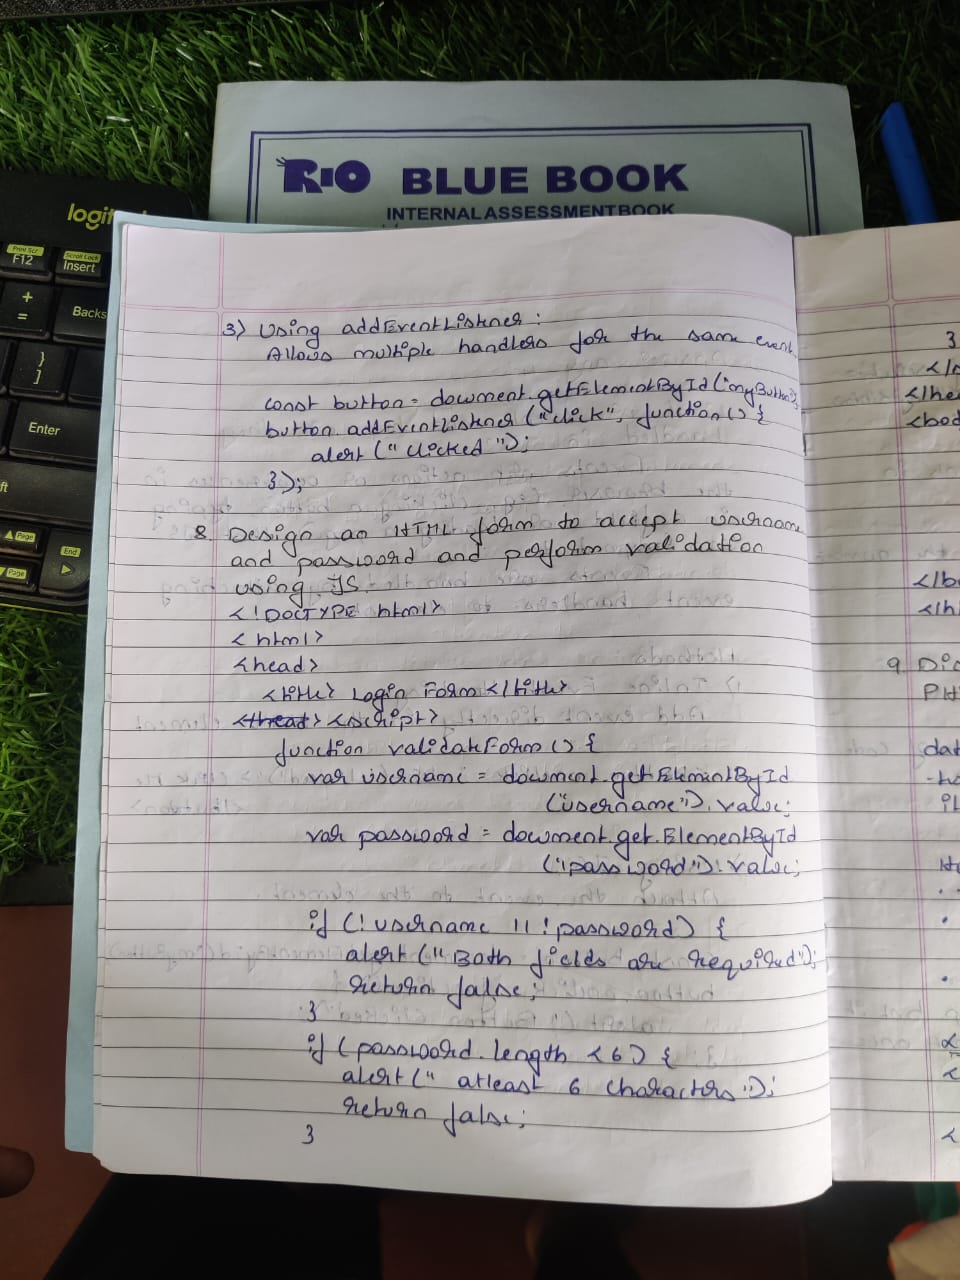 logi
Free Scr
F12
Scroll Lock
Insert
+
=
Backs
}
]
Enter
ft
Page
End
Page
RIO BLUE BOOK
INTERNAL ASSESSMENT BOOK
3) Using addEventListener :
Allows multiple handlers for the same event.
const button = document.getElementById("myButton");
button.addEventListener ("click", function () {
alert (" clicked ");
});
8. Design an HTML form to accept username
and password and perform validation
using JS.
<!DOCTYPE html>
< html>
<head>
<title> Login Form </title>
<script>
function validateForm () {
var username = document.getElementById
("username").value;
var password = document.get.ElementById
("password").value;
if (! username || ! password) {
alert (" Both fields are required");
return false;
}
if (password.length < 6) {
alert (" atleast 6 characters ");
return false;
}
3
</hea
<bod
</b
</h
9. Di
dat